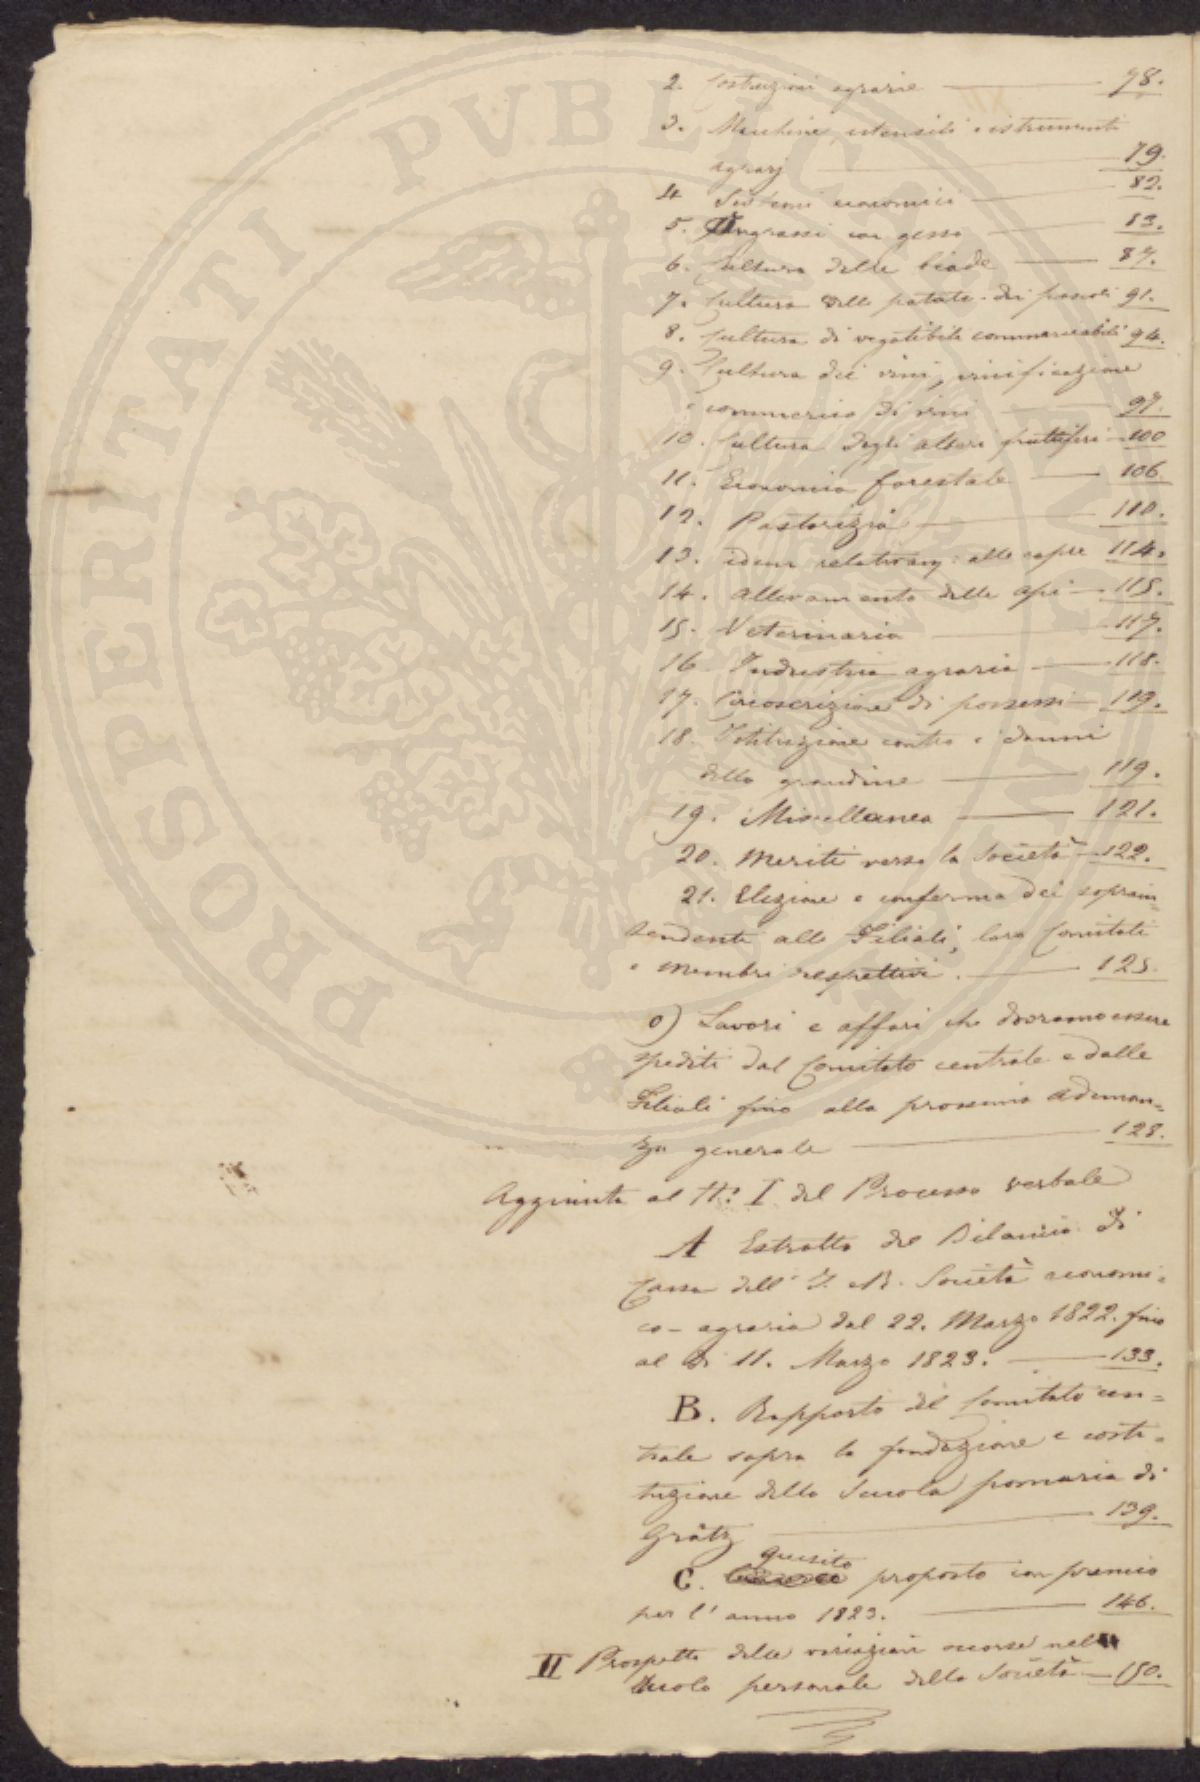 2. Costruzioni agrarie — 78.
3. Macchine, utensili e istrumenti
agrarj — 79.
4 Sistemi economici — 82.
5. Ingrassi con gesso — 83.
6. Cultura delle biade — 87.
7. Cultura delle patate - dei pascoli 91.
8. Cultura di vegetabili commerciabili 94.
9. Cultura dei vini, vinificazione
e commercio di vini — 97.
10. Cultura degli alberi fruttiferi — 100
11. Economia forestale — 106
12. Pastorizia — 110.
13. idem relativam: alle capre 114.
14. Allevamento delle api — 115.
15. Veterinaria — 117.
16. Industria agraria — 118.
17. Circoscrizione di possessi — 119.
18. Istituzione contro i danni
della grandine — 119.
19. Miscellanea — 121.
20. Meriti verso la Società — 122.
21. Elezione e conferma dei soprain=
tendenti alle Filiali, loro Comitati
e membri respettivi. — 125.
o) Lavori e affari che dovranno essere
spediti dal Comitato centrale e dalle
Filiali fino alla prossima adunan=
za generale — 128.
Aggiunta al N.º I del Processo verbale
A Estratto del Bilancio di
Cassa dell' I. R. Società economi=
co-agraria dal 22. Marzo 1822. fino
al dì 11. Marzo 1823. — 133.
B. Rapporto del Comitato cen=
trale sopra la fondazione e costi=
tuzione della Scuola pomaria di
Grätz — 139.
quesito
C. proposto con premio
per l' anno 1823. — 146.
II Prospetto delle variazioni occorse nel
Ruolo personale della Società — 150.
PROSPERITATI PVBLICAE AVGENDAE